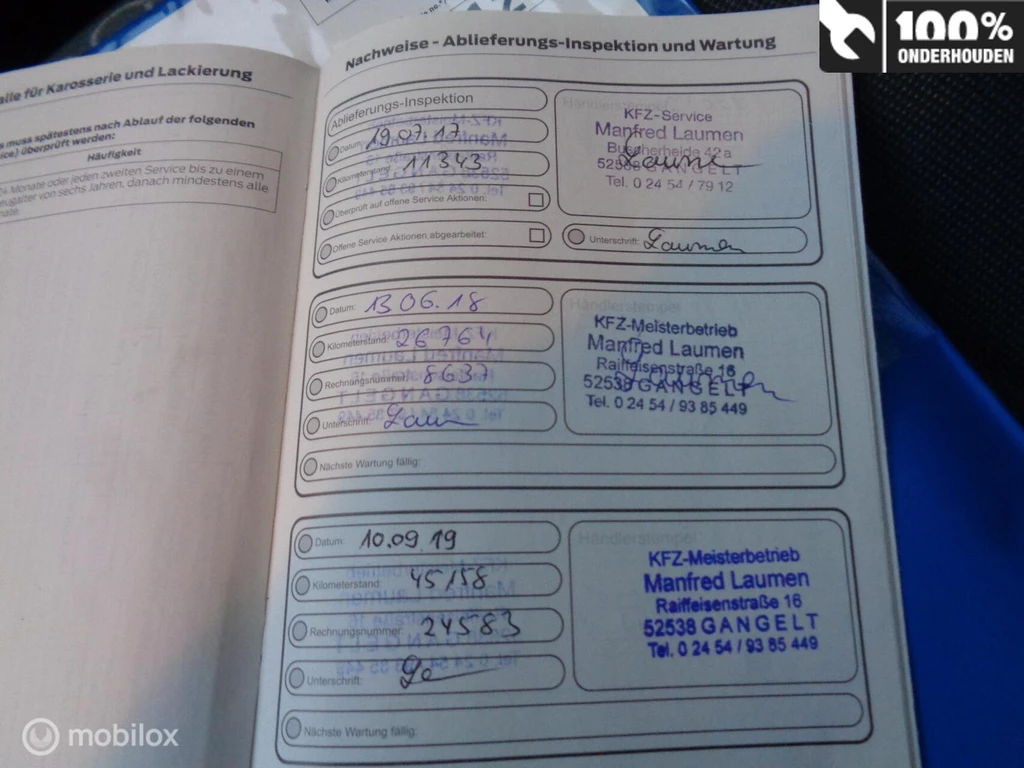 100%
ONDERHOUDEN
alle für Karosserie und Lackierung
s muss spätestens nach Ablauf der folgenden
ice) überprüft werden:
Häufigkeit
Monate oder jeden zweiten Service bis zu einem
eugalter von sechs Jahren, danach mindestens alle
nate.
Nachweise - Ablieferungs-Inspektion und Wartung
Ablieferungs-Inspektion
Datum: 19.07.17
Kilometerstand: 11343
Überprüft auf offene Service Aktionen:
Offene Service Aktionen abgearbeitet:
KFZ-Service
Manfred Laumen
Buscherheide 42a
52538 GANGELT
Tel. 0 24 54 / 79 12
Unterschrift: Laumen
Datum: 13.06.18
Kilometerstand: 26764
Rechnungsnummer: 8637
Unterschrift:
Nächste Wartung fällig:
Händlerstempel
KFZ-Meisterbetrieb
Manfred Laumen
Raiffeisenstraße 16
52538 GANGELT
Tel. 0 24 54 / 93 85 449
Datum: 10.09.19
Kilometerstand: 45158
Rechnungsnummer: 24583
Unterschrift:
Nächste Wartung fällig:
Händlerstempel
KFZ-Meisterbetrieb
Manfred Laumen
Raiffeisenstraße 16
52538 GANGELT
Tel. 0 24 54 / 93 85 449
mobilox